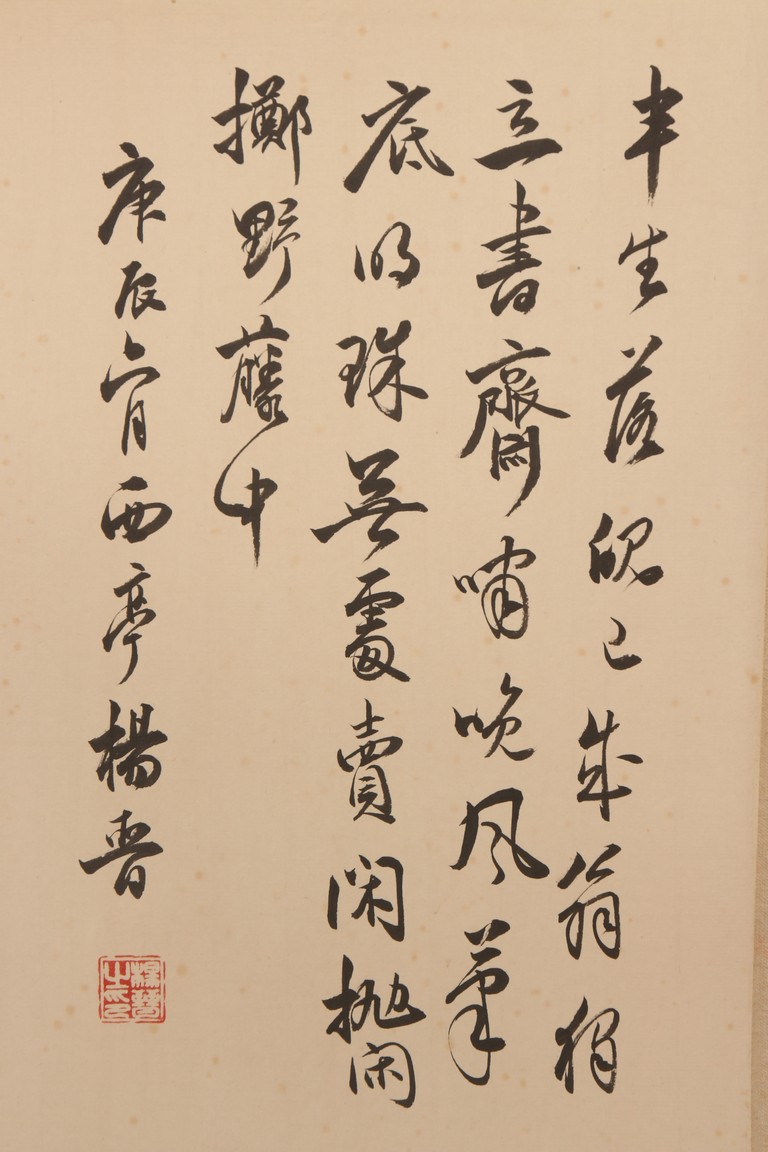 半生落魄已成翁獨
立書齋嘯晚風筆
底明珠無處賣閑拋閑
擲野藤中
庚辰六月西亭楊晉
楊晉之印